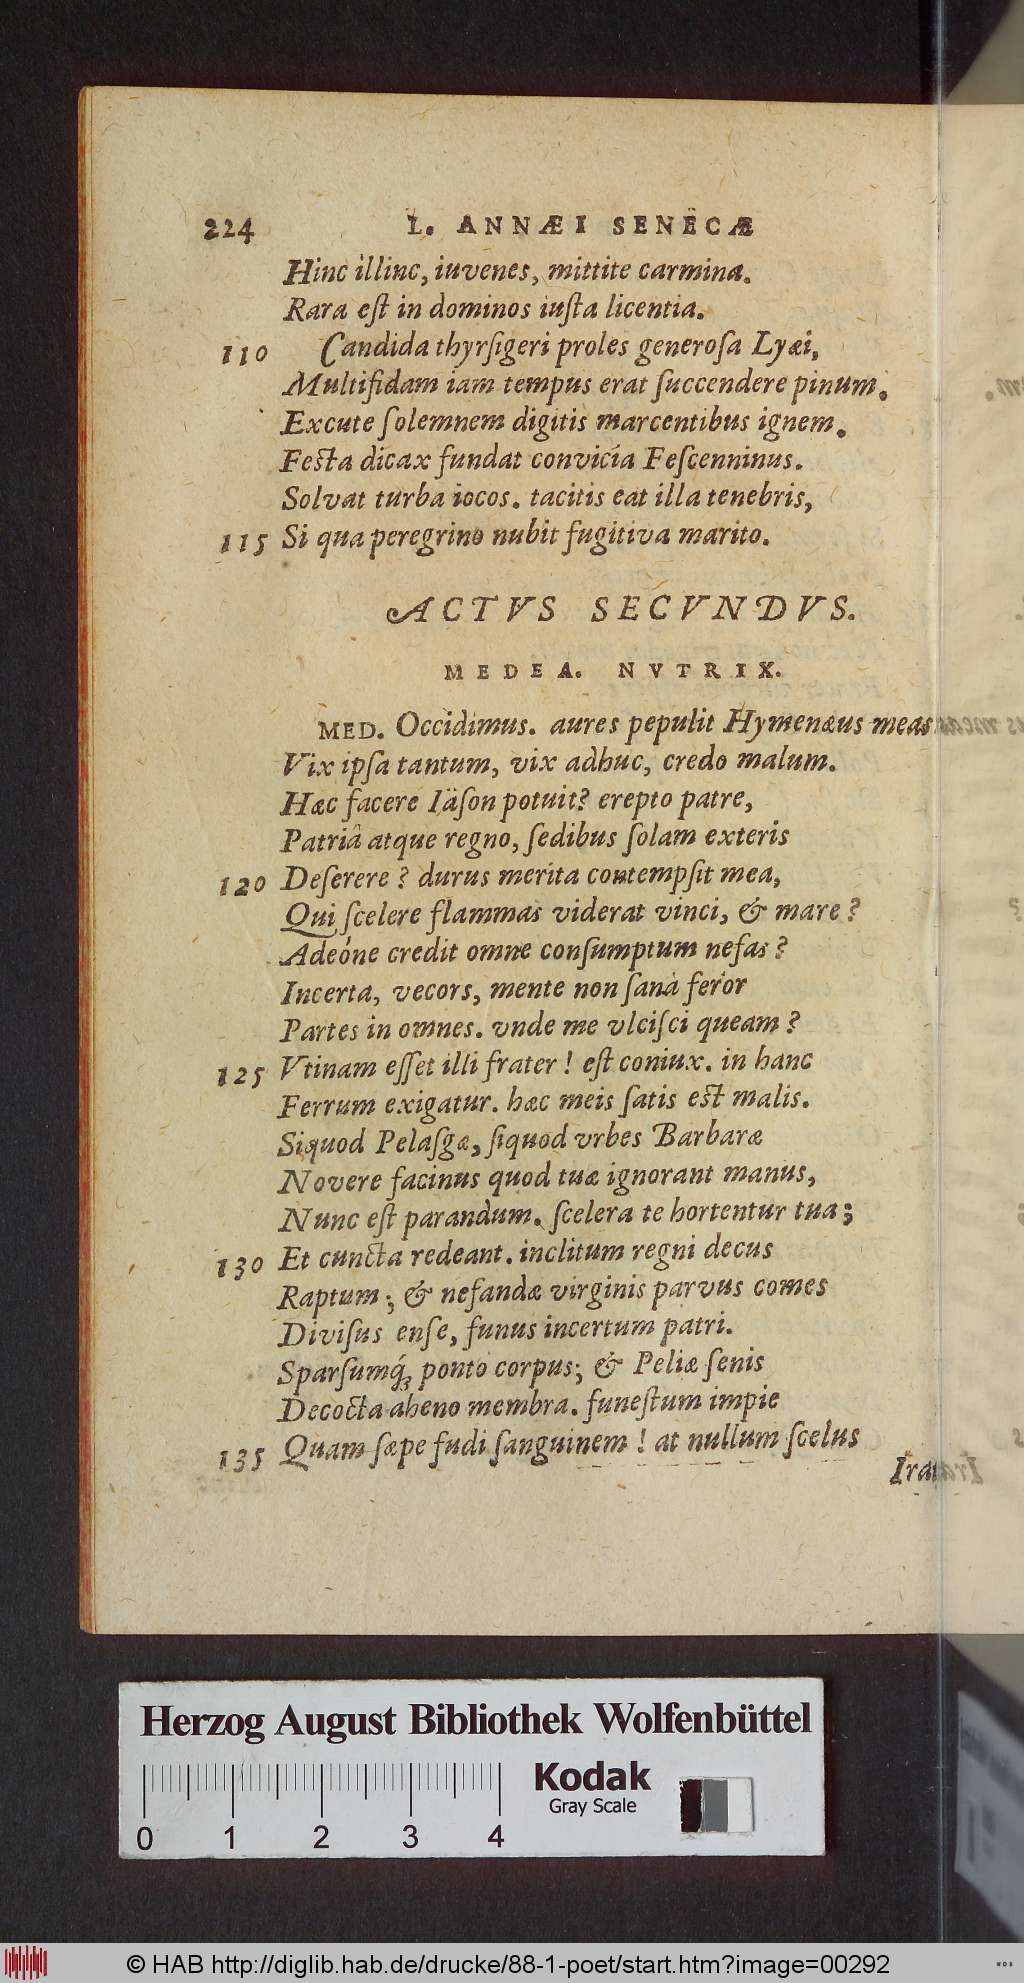 224 L. ANNÆI SENECÆ
Hinc illinc, iuvenes, mittite carmina.
Rara eſt in dominos iuſta licentia.
110 Candida thyrſigeri proles generoſa Lyæi,
Multifidam iam tempus erat ſuccendere pinum.
Excute ſolemnem digitis marcentibus ignem.
Feſta dicax fundat convicia Feſcenninus.
Solvat turba iocos. tacitis eat illa tenebris,
115 Si qua peregrino nubit fugitiva marito.
ACTVS SECVNDVS.
MEDEA. NVTRIX.
MED. Occidimus. aures pepulit Hymenæus meas
Vix ipſa tantum, vix adhuc, credo malum.
Hæc facere Iäſon potuit? erepto patre,
Patriâ atque regno, ſedibus ſolam exteris
120 Deſerere? durus merita contempſit mea,
Qui ſcelere flammas viderat vinci, & mare?
Adeóne credit omne conſumptum nefas?
Incerta, vecors, mente non ſanà feror
Partes in omnes. vnde me vlciſci queam?
125 Vtinam eſſet illi frater! eſt coniux. in hanc
Ferrum exigatur. hæc meis ſatis eſt malis.
Siquod Pelaſgæ, ſiquod vrbes Barbaræ
Novere facinus quod tuæ ignorant manus,
Nunc eſt parandum. ſcelera te hortentur tua;
130 Et cuncta redeant. inclitum regni decus
Raptum; & nefandæ virginis parvus comes
Diviſus enſe, funus incertum patri.
Sparſumq́; ponto corpus; & Peliæ ſenis
Decocta aheno membra. funeſtum impie
135 Quam ſæpe fudi ſanguinem! at nullum ſcelus
Herzog August Bibliothek Wolfenbüttel
Kodak
Gray Scale
0 1 2 3 4
© HAB http://diglib.hab.de/drucke/88-1-poet/start.htm?image=00292